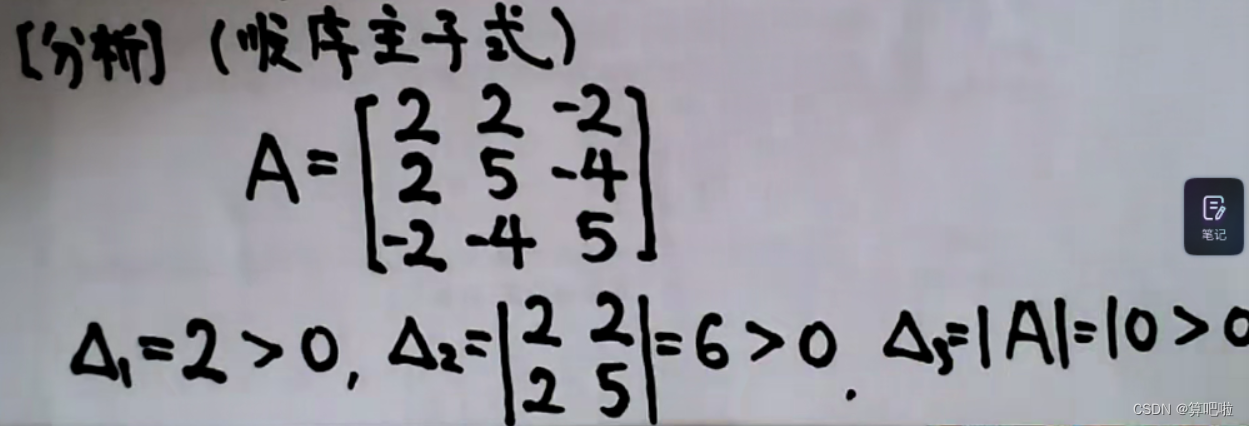 [分析] (顺序主子式)
A = [ 2 2 -2
2 5 -4
-2 -4 5 ]
Δ₁=2>0, Δ₂=|2 2|=6>0. Δ₃=|A|=10>0
|2 5|
笔记
CSDN @算吧啦